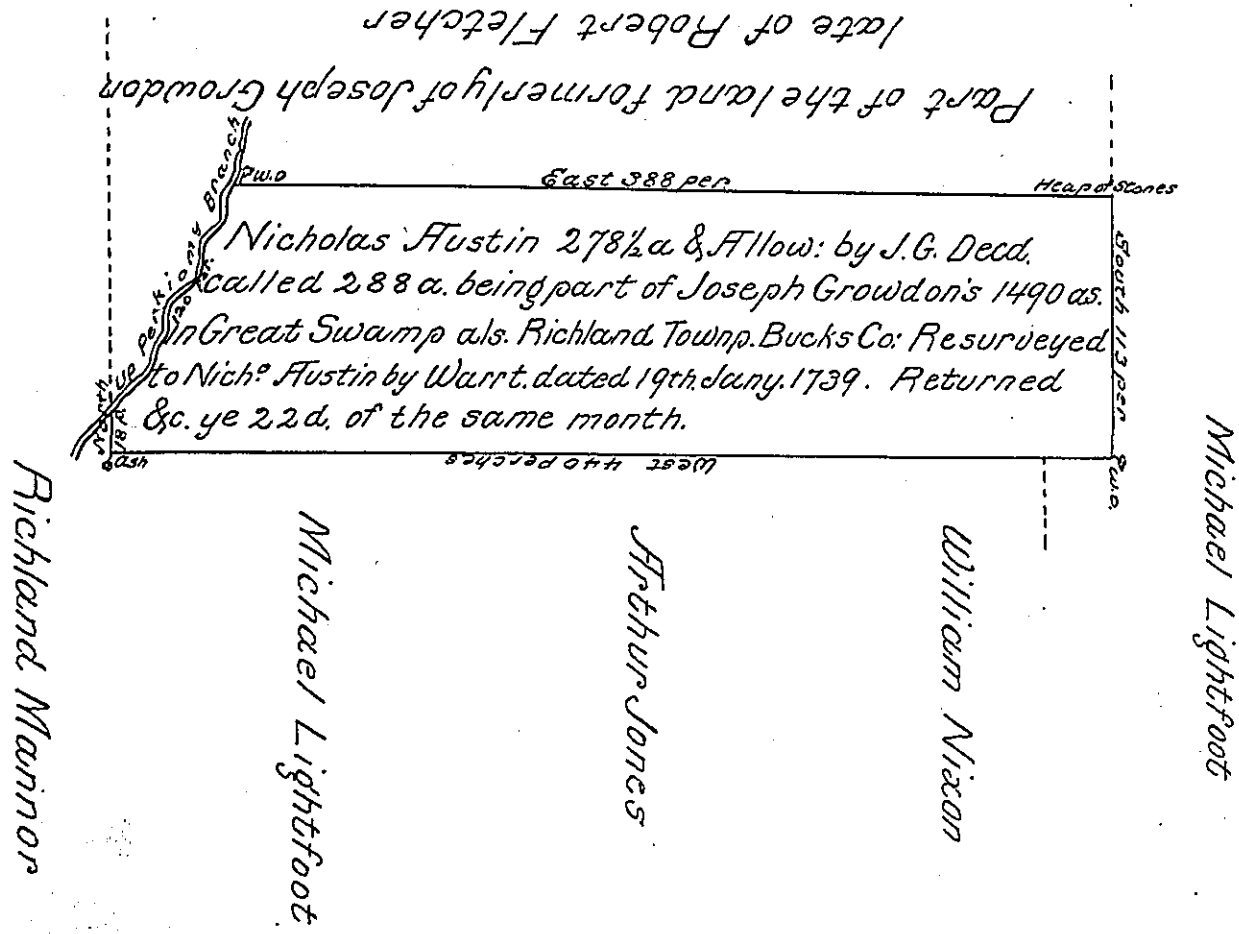 late of Robert Fletcher
Part of the land formerly of Joseph Growdon
P.W.O
East 388 per.
Heap of Stones
Nicholas Austin 278½a & Allow: by J.G. Decd.
called 288 a. being part of Joseph Growdon's 1490 as.
in Great Swamp als. Richland Townp. Bucks Co: Resurveyed
to Nicho Austin by Warrt. dated 19th. Jany. 1739. Returned
&c. ye 22d. of the same month.
ye Perkiomy Branch
South 113 per
North
18 p.
Ash
West 440 perches
P.W.O.
Richland Mannor
Michael Lightfoot
Arthur Jones
William Nixon
Michael Lightfoot